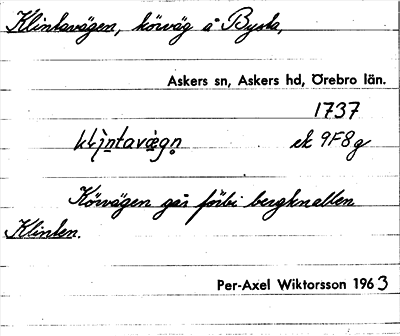 Klintavägen, körväg å Bysta,
Askers sn, Askers hd, Örebro län.
1737
ek 9F8g
Körvägen går förbi bergknallen
Klinten.
Per-Axel Wiktorsson 1963